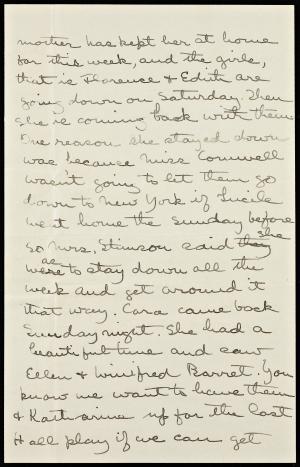 mother has kept her at home
for this week, and the girls,
that is Florence & Edith are
going down on Saturday. Then
she is coming back with them
The reason she stayed down
was because Miss Conwell
wasn't going to let them go
down to New York if Lucile
went home the Sunday before
so Mrs. Stimson said they she
were as to stay down all the
week and get around it
that way. Cara came back
Sunday night. She had a
beautiful time and saw
Ellen & Winifred Barret. You
know we want to have them
& Katharine up for the last
H all play if we can get